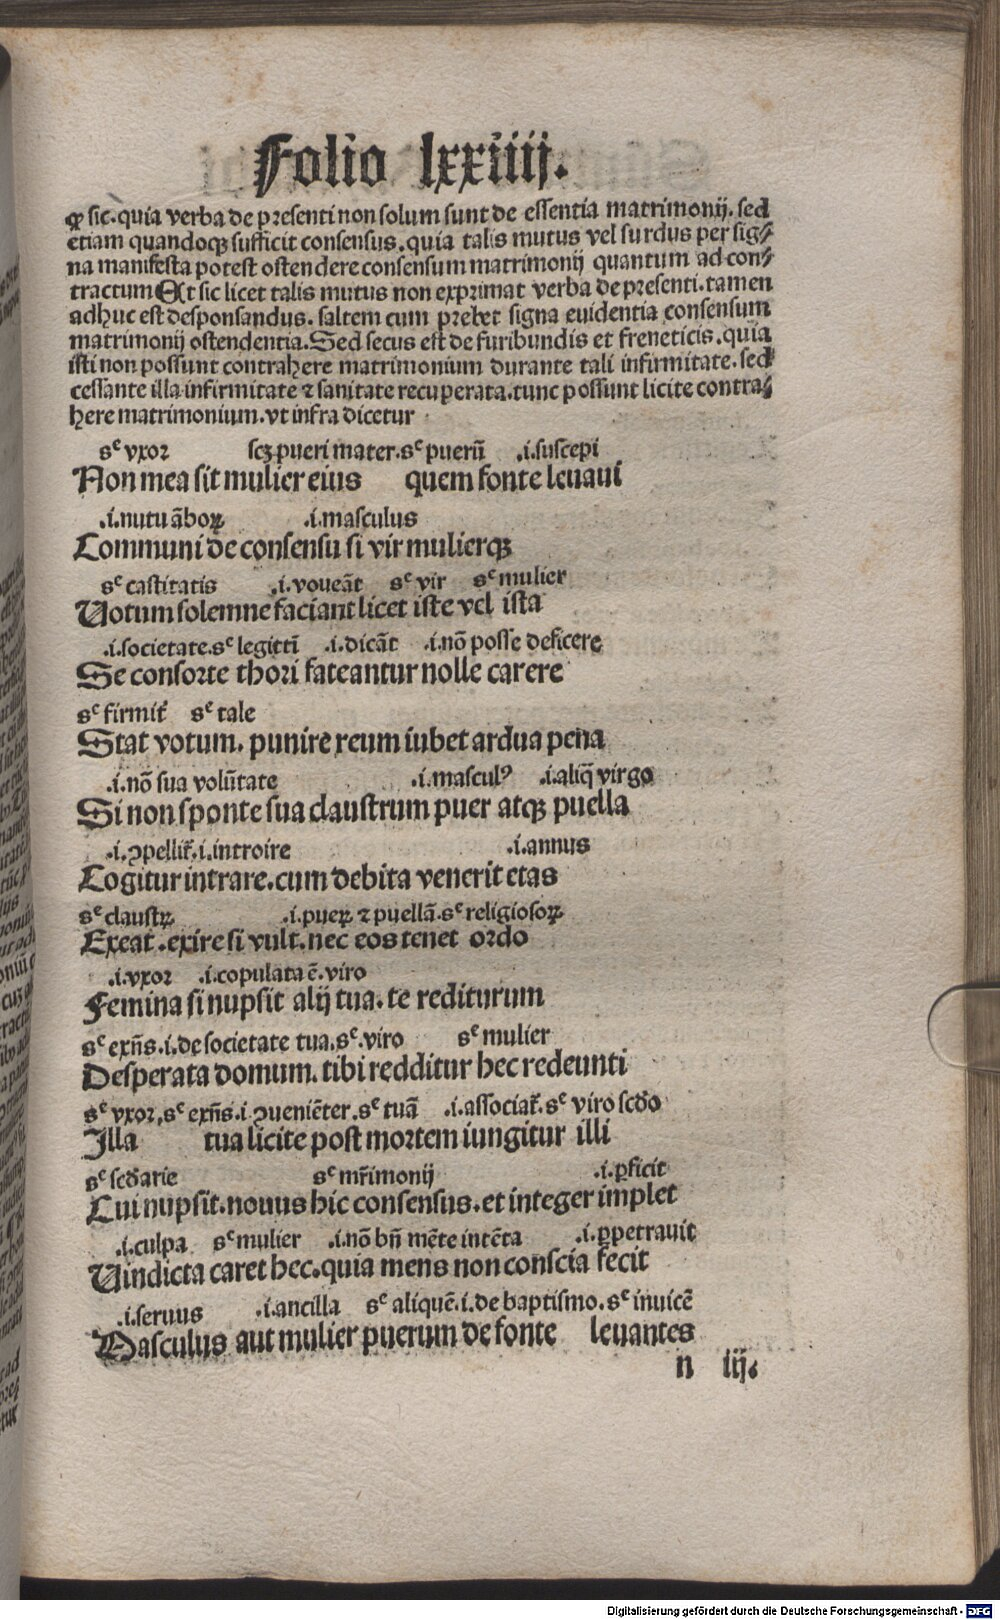 Folio lxxiiij.
ꝙ sic. quia verba de presenti non solum sunt de essentia matrimonij. sed
etiam quandocꝗ sufficit consensus. quia talis mutus vel surdus per sig⸗
na manifesta potest ostendere consensum matrimonij quantum ad con⸗
tractum Et sic licet talis mutus non exprimat verba de presenti. tamen
adhuc est desponsandus. saltem cum prebet signa euidentia consensum
matrimonij ostendentia. Sed secus est de furibundis et freneticis. quia
isti non possunt contrahere matrimonium durante tali infirmitate. sed
cessante illa infirmitate ⁊ sanitate recuperata. tunc possunt licite contra⸗
here matrimonium. vt infra dicetur
sᶜ vxor scꝫ pueri mater. sᶜ puerū .i. suscepi
Non mea sit mulier eius quem fonte leuaui
.i. nutu āboꝝ .i. masculus
Communi de consensu si vir mulierqꝫ
sᶜ castitatis .i. voueāt sᶜ vir sᶜ mulier
Uotum solemne faciant licet iste vel ista
.i. societate. sᶜ legittī .i. dicāt .i. nō posse deficere
Se consorte thori fateantur nolle carere
sᶜ firmit̄ sᶜ tale
Stat votum. punire reum iubet ardua pena
.i. nō sua volūtate .i. masculꝰ .i. aliq̄ virgo
Si non sponte sua claustrum puer atqꝫ puella
.i. ꝯpellit̄. i. introire .i. annus
Cogitur intrare. cum debita venerit etas
sᶜ claustꝝ .i. pueꝝ ⁊ puellā. sᶜ religiosoꝝ
Exeat. exire si vult. nec eos tenet ordo
.i. vxor .i. copulata ē. viro
Femina si nupsit alij tua. te rediturum
sᶜ exn̄s. i. de societate tua. sᶜ. viro sᶜ mulier
Desperata domum. tibi redditur hec redeunti
sᶜ vxor, sᶜ exn̄s. i. ꝯueniēter. sᶜ tuā .i. associat̄. sᶜ viro scd̄o
Illa tua licite post mortem iungitur illi
sᶜ scd̄arie sᶜ mr̄imonij .i. ꝑficit
Cui nupsit. nouus hic consensus. et integer implet
.i. culpa sᶜ mulier .i. nō bn̄ mēte intēta .i. ꝑpetrauit
Uindicta caret hec. quia mens non conscia fecit
.i. seruus .i. ancilla sᶜ aliquē. i. de baptismo. sᶜ inuicē
Masculus aut mulier puerum de fonte leuantes
n iij.
Digitalisierung gefördert durch die Deutsche Forschungsgemeinschaft - DFG